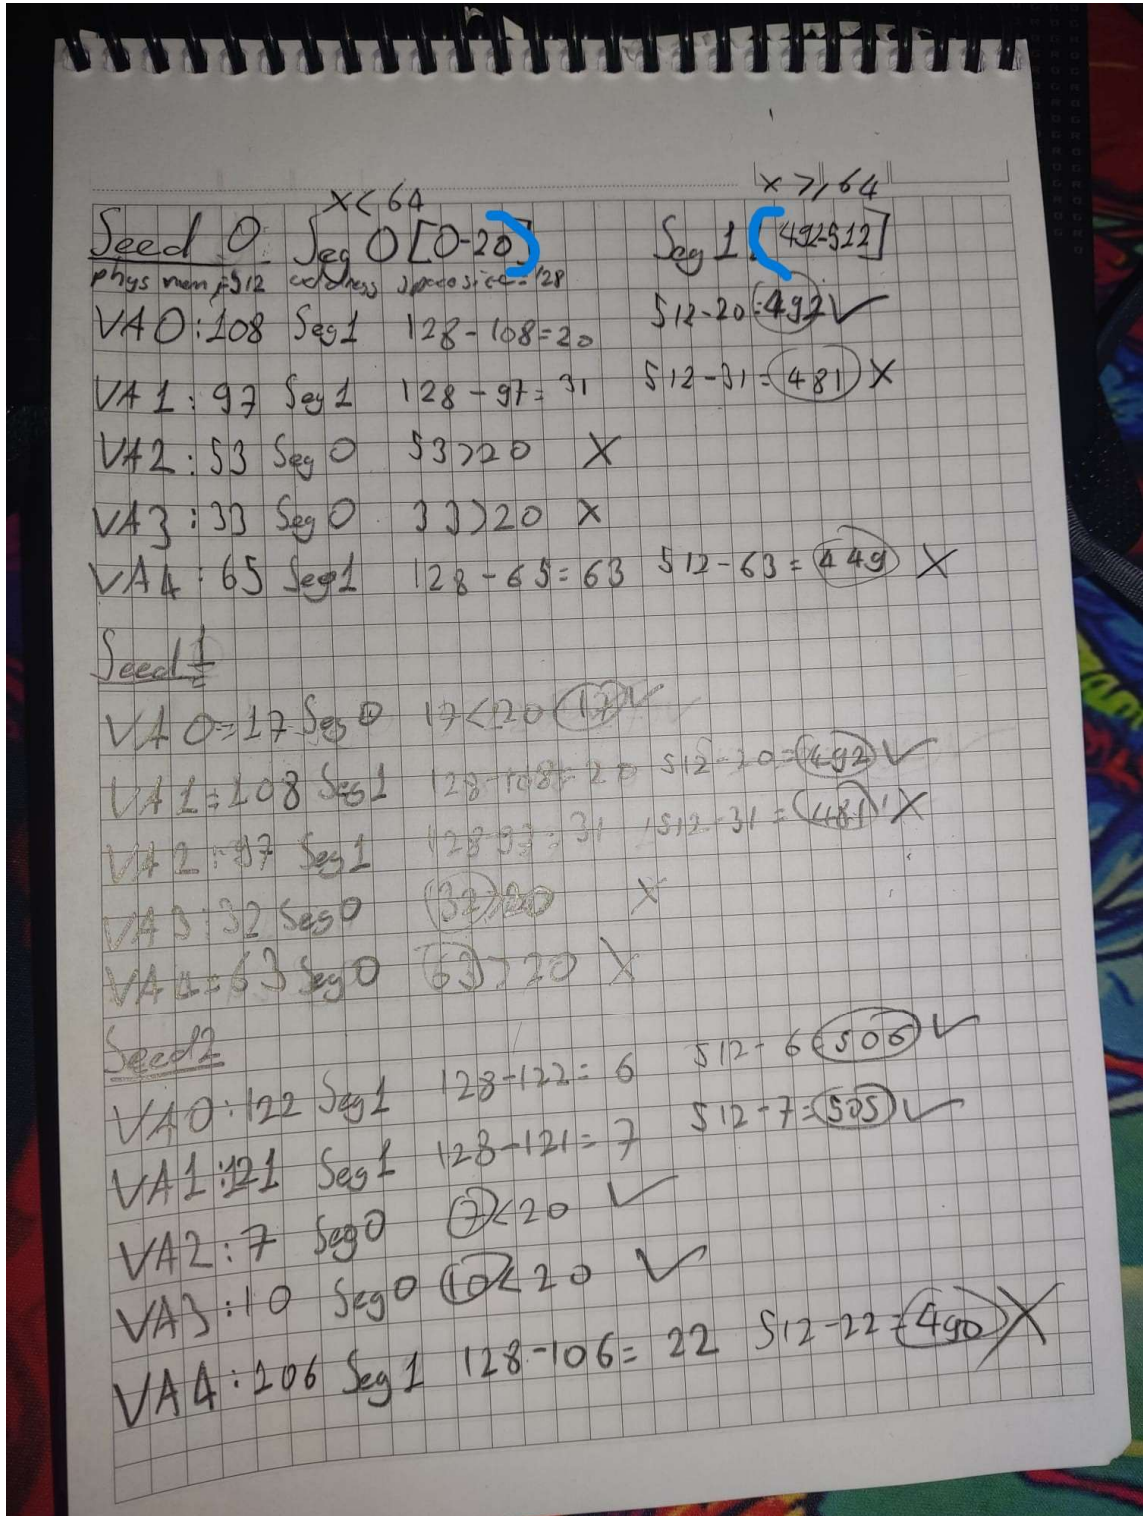 x<64 x≥64
Seed 0: Seg 0 [0-20) Seg 1 (492-512]
phys mem=512 address space size=128
VA0:108 Seg1 128-108=20 512-20=492 ✓
VA1:97 Seg1 128-97=31 512-31=481 X
VA2:53 Seg0 53>20 X
VA3:33 Seg0 33>20 X
VA4:65 Seg1 128-65=63 512-63=449 X
Seed 1
VA0=17 Seg0 17<20 17 ✓
VA1=108 Seg1 128-108=20 512-20=492 ✓
VA2:97 Seg1 128-97=31 512-31=481 X
VA3:32 Seg0 32>20 X
VA4=63 Seg0 63>20 X
Seed2
VA0:122 Seg1 128-122=6 512-6 506 ✓
VA1:121 Seg1 128-121=7 512-7=505 ✓
VA2:7 Seg0 7<20 ✓
VA3:10 Seg0 10<20 ✓
VA4:106 Seg1 128-106=22 512-22=490 X